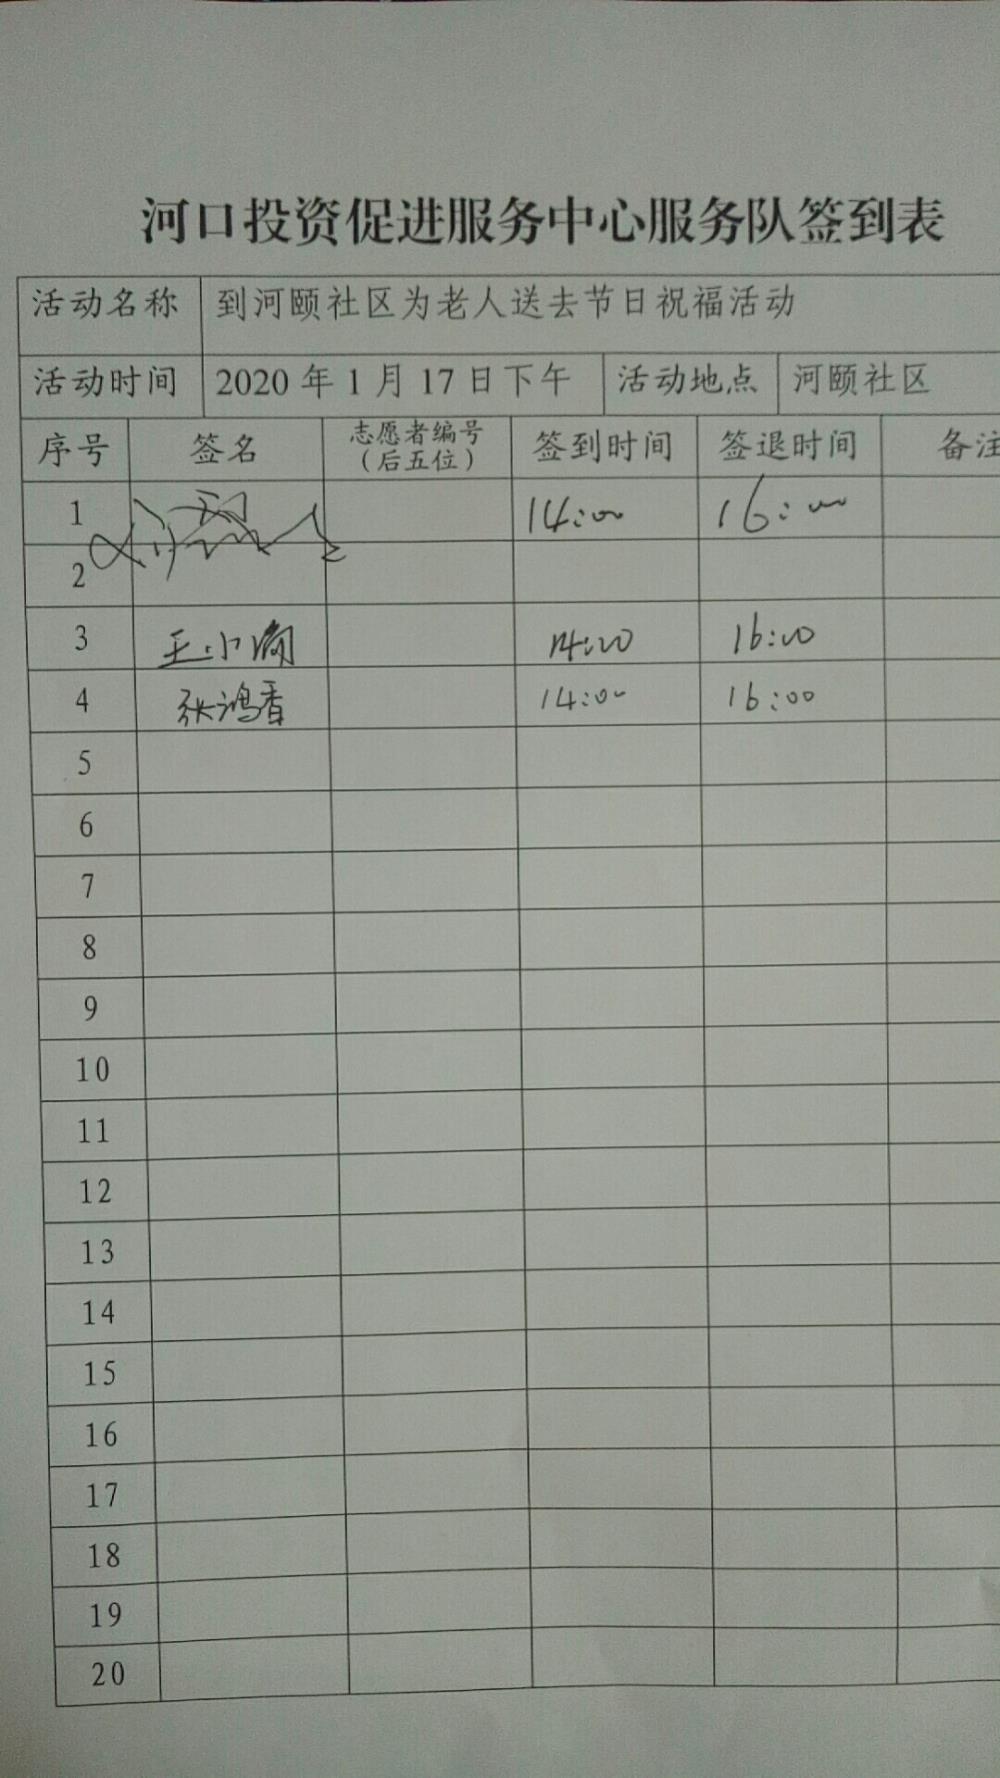 河口投资促进服务中心服务队签到表
活动名称 到河颐社区为老人送去节日祝福活动
活动时间 2020 年 1 月 17 日下午 活动地点 河颐社区
序号 签名 志愿者编号（后五位） 签到时间 签退时间 备注
1 14:00 16:00
2
3 王小 14:00 16:00
4 张鸿香 14:00 16:00
5
6
7
8
9
10
11
12
13
14
15
16
17
18
19
20